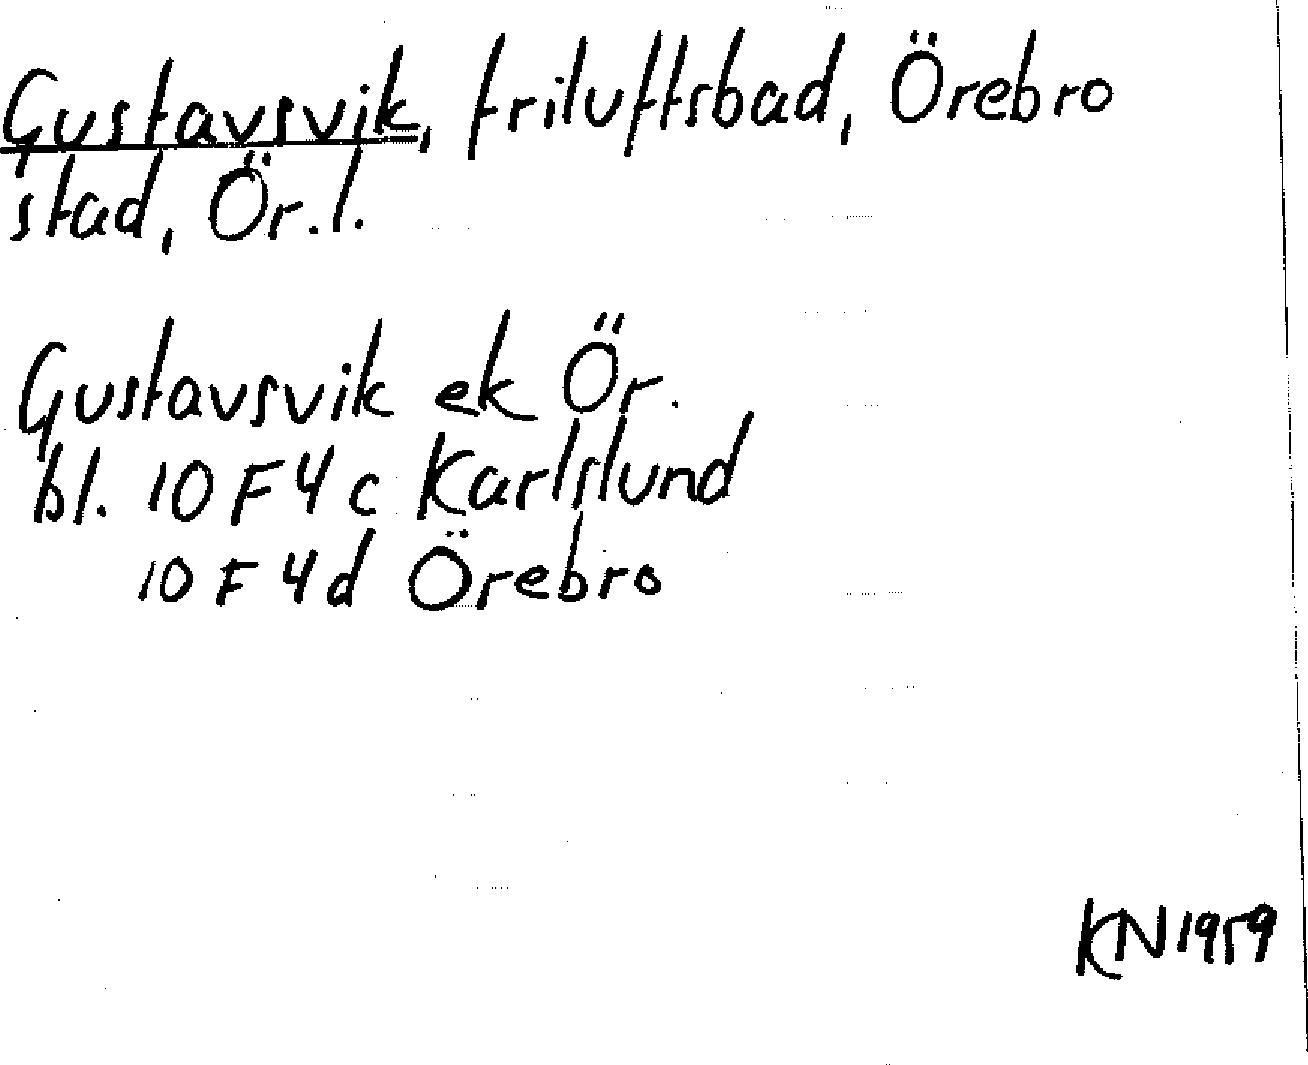 Gustavsvik, friluftsbad, Örebro
stad, Ör. l.
Gustavsvik ek Ör.
bl. 10 F 4 c Karlslund
10 F 4 d Örebro
KN 1959